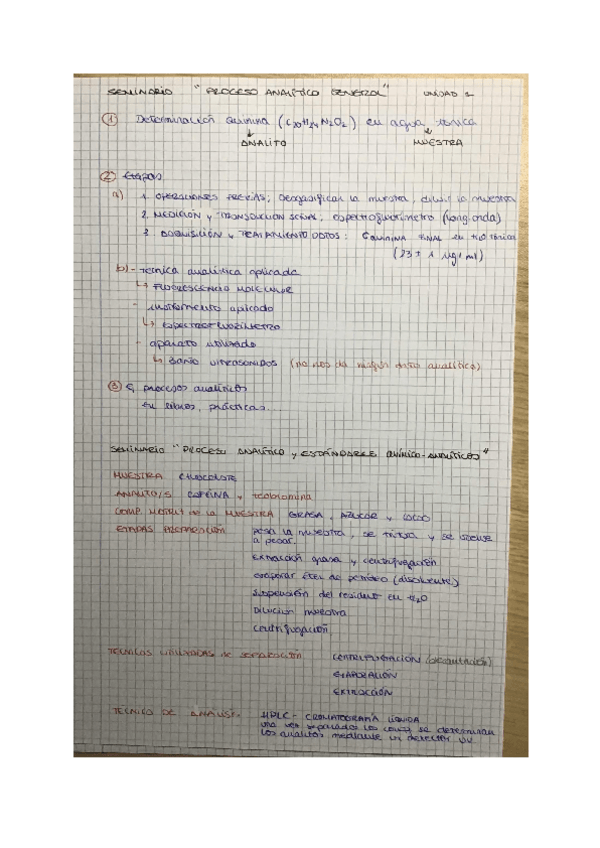 SEMINARIO "PROCESO ANALÍTICO GENERAL" UNIDAD 1
① Determinación quinina (C20H24N2O2) en agua tónica
ANALITO MUESTRA
② Etapas
a) 1. OPERACIONES PREVIAS; Desgasificar la muestra, diluir la muestra
2. MEDICIÓN y TRANSDUCCIÓN SEÑAL; espectrofluorímetro (long. onda)
3. ADQUISICIÓN y TRATAMIENTO DATOS: Quinina final en H2O tónica
(23 ± 1 µg/ml)
b) - Técnica analítica aplicada
↳ FLUORESCENCIA MOLECULAR
- instrumento aplicado
↳ ESPECTROFLUORÍMETRO
- aparato utilizado
↳ BAÑO ULTRASONIDOS (no nos da ningún dato analítico)
③ procesos analíticos
En libros, prácticas...
SEMINARIO "PROCESO ANALÍTICO y ESTÁNDARES QUÍMICO-ANALÍTICOS"
MUESTRA CHOCOLATE
ANALITO/S CAFEÍNA y teobromina
COMP. MATRIZ de la MUESTRA GRASA, AZÚCAR y CACAO
ETAPAS PREPARACIÓN pesa la muestra, se tritura y se vuelve
a pesar.
extracción grasa y centrifugación
evaporar éter de petróleo (disolvente)
suspensión del residuo en H2O
Dilución muestra
centrifugación
TÉCNICAS UTILIZADAS de SEPARACIÓN CENTRIFUGACIÓN (decantación)
EVAPORACIÓN
EXTRACCIÓN
TÉCNICA DE ANÁLISIS HPLC - CROMATOGRAFÍA LÍQUIDA
una vez separados los se determinan
los analitos mediante un detector UV